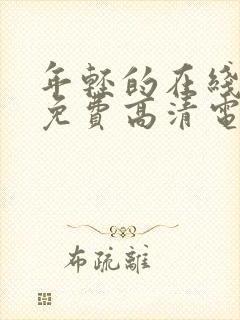 年轻的在线
免費高清電
布疏離